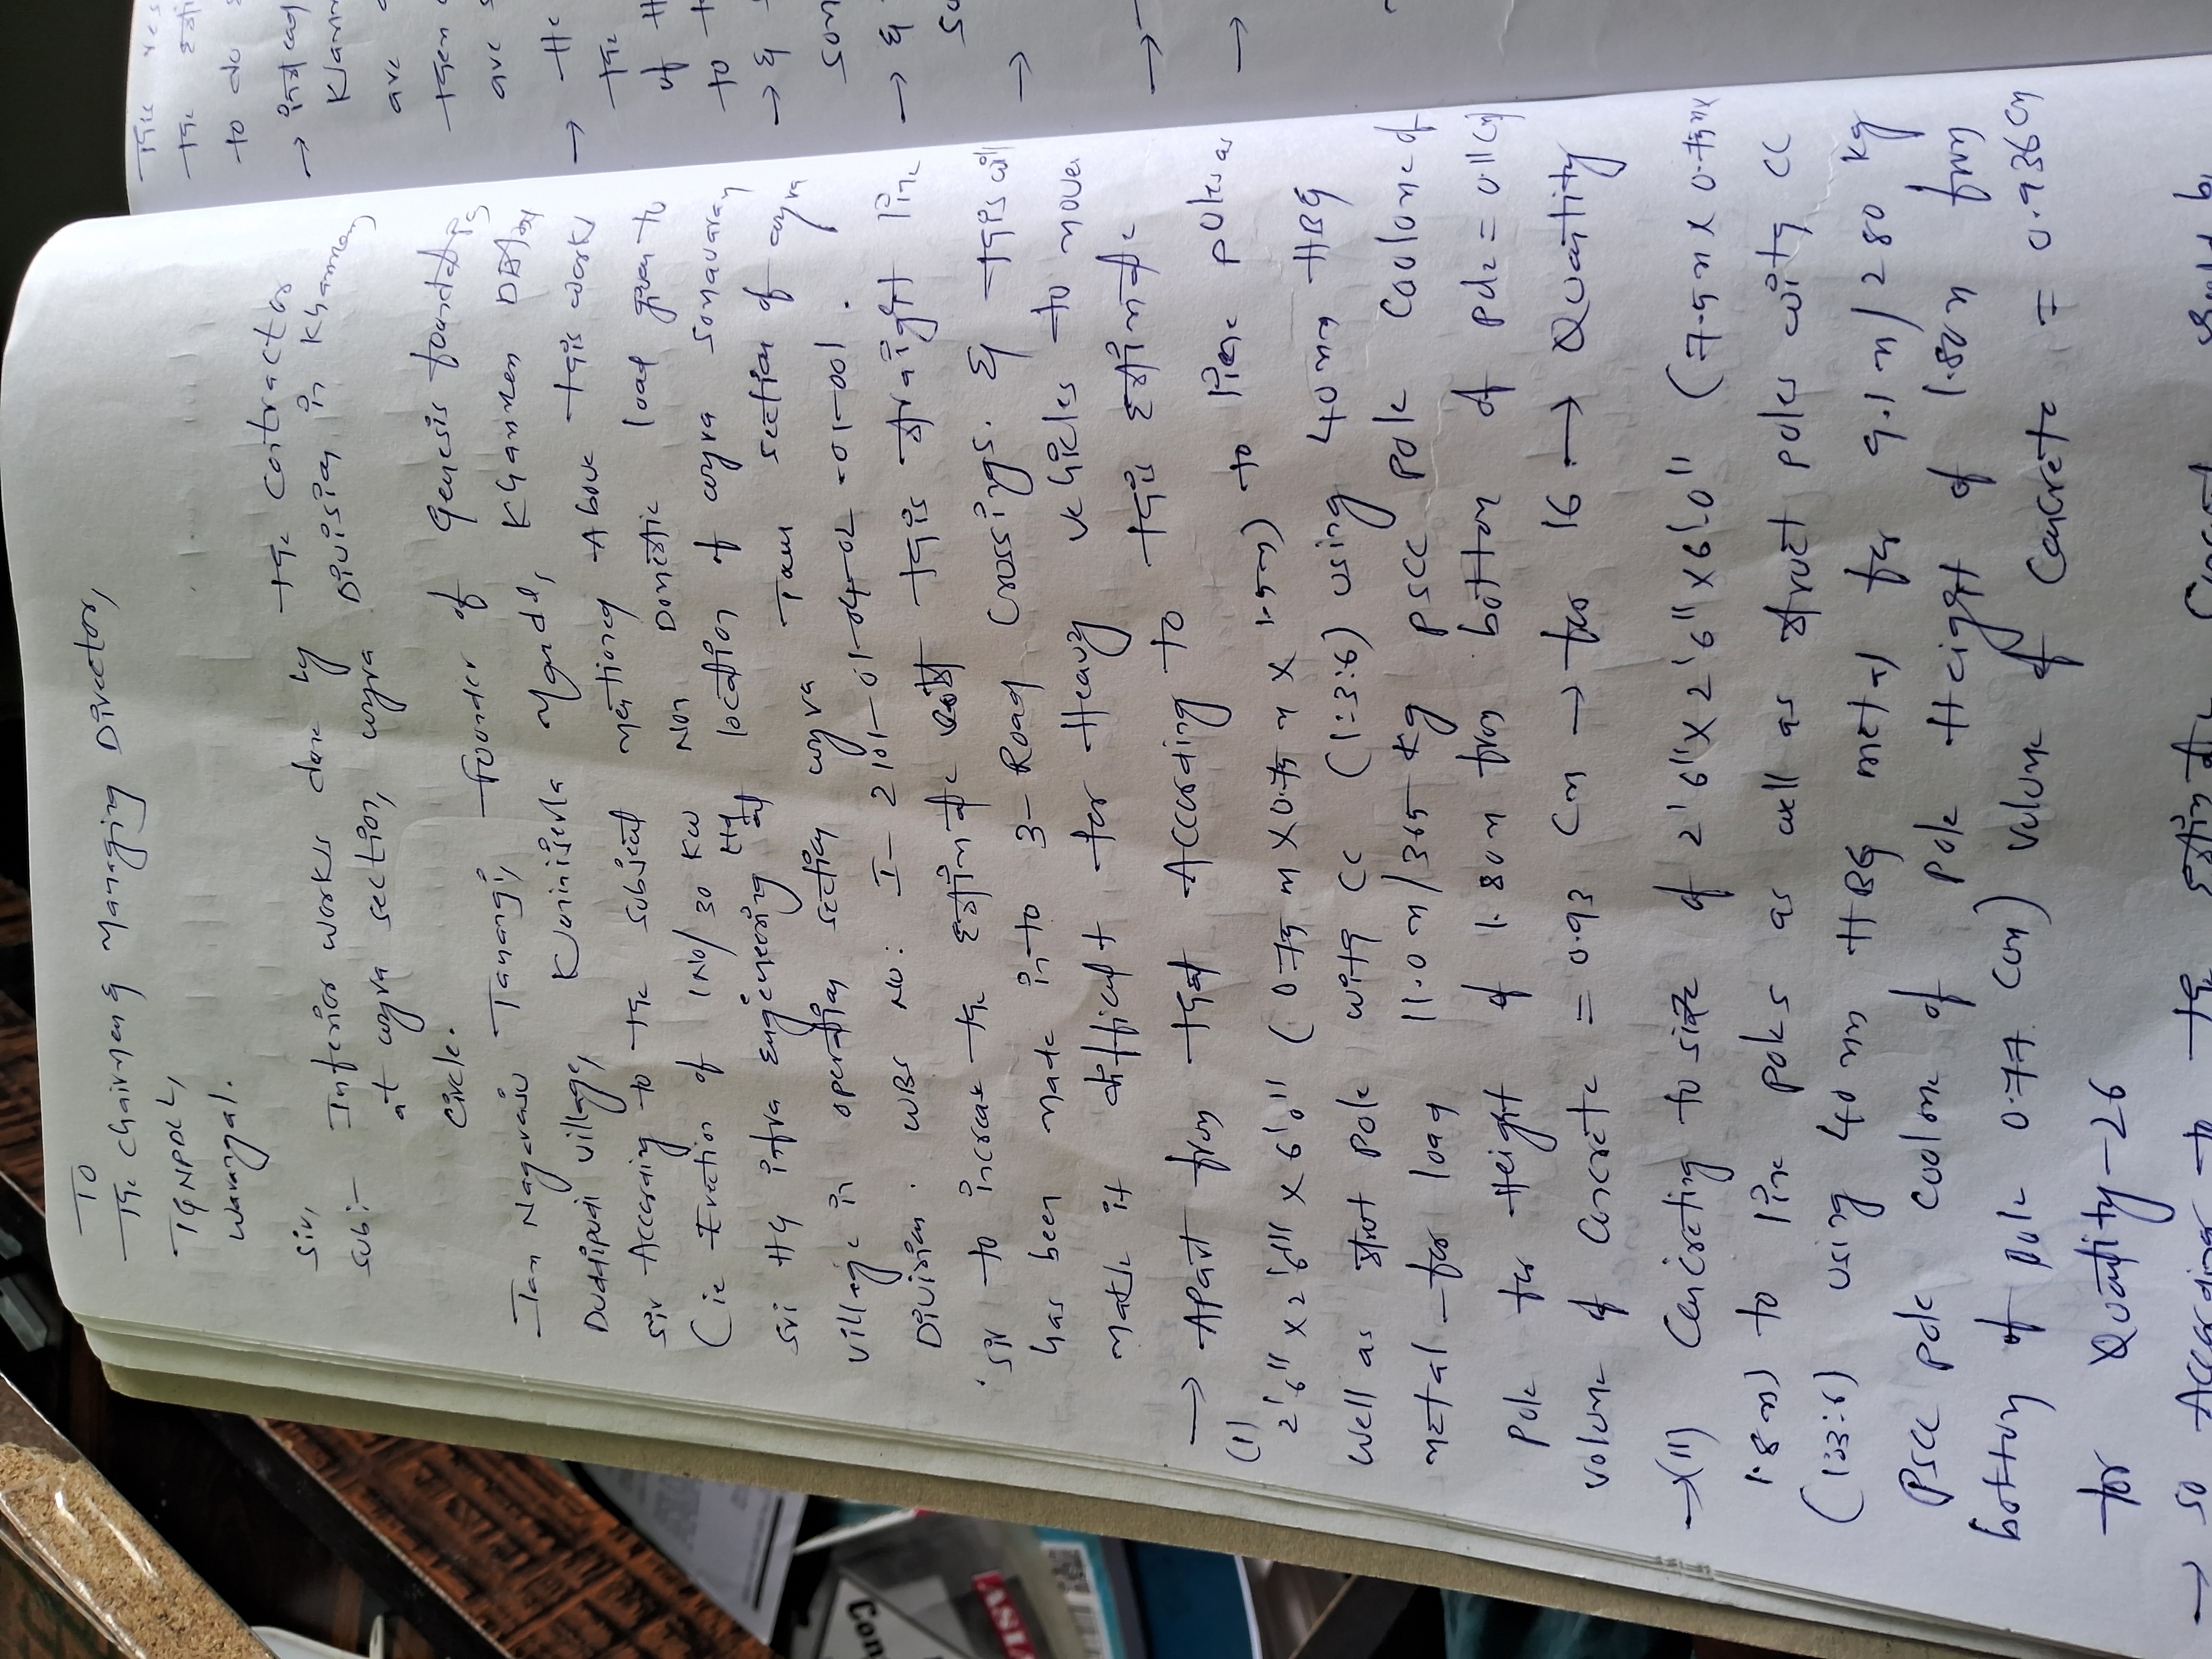 To
The Chairmen & Managing Director,
TGNPDCL,
Warangal.
Sir,
Sub:- Inferior works done by the contractor
at wyra section, wyra Division in Khammam
Circle.
I am Nageswara Tanangi, Founder of Genesis
Duddipudi village, Konijerla Mandal, Khammam
Sir According to the subject mentioned Above this work
(ie Erection of 1No/30 KW Non Domestic load given to
Sri H4 infra Engineering location of wyra Somavaram
village in operation section wyra Town section of wyra
Division. WBS No: I-2101-01-04-02-01-001.
Sir to increase the Estimate cost this straight line
has been made into 3-Road crossings. & this will
make it difficult for Heavy vehicles to move
→ Apart from that According to this Estimate
(1) 2'6"x2'6"x6'0" (0.75m x 0.75m x 1.5m) to line poles as
well as strut pole with CC (1:3:6) using 40mm HBG
metal for load 11.0m/365 Kg PSCC pole Coulomc of
Pole for Height of 1.80m from bottom of pole = 0.11Cm
volume of concrete = 0.93 Cm → for 16 → Quantity
→(11) Concreting to size of 2'6"x2'6"x6'.0" (7.5m x 0.75m x
1.8m) to line poles as well as strut poles with CC
(1:3:6) using 40mm HBG metal for 9.1m/280 Kg
PSCC pole coolmc of pole Height of 1.80m from
bottom of pole 0.77 Cm) volume of concrete = 0.936Cm
for Quantity-26
→ so According to the Estimate
The
the
to do
→
Khamm
are
then
are
→ the
the
of
to
→ &
som
→ &
→
→
→
Con
ASIA